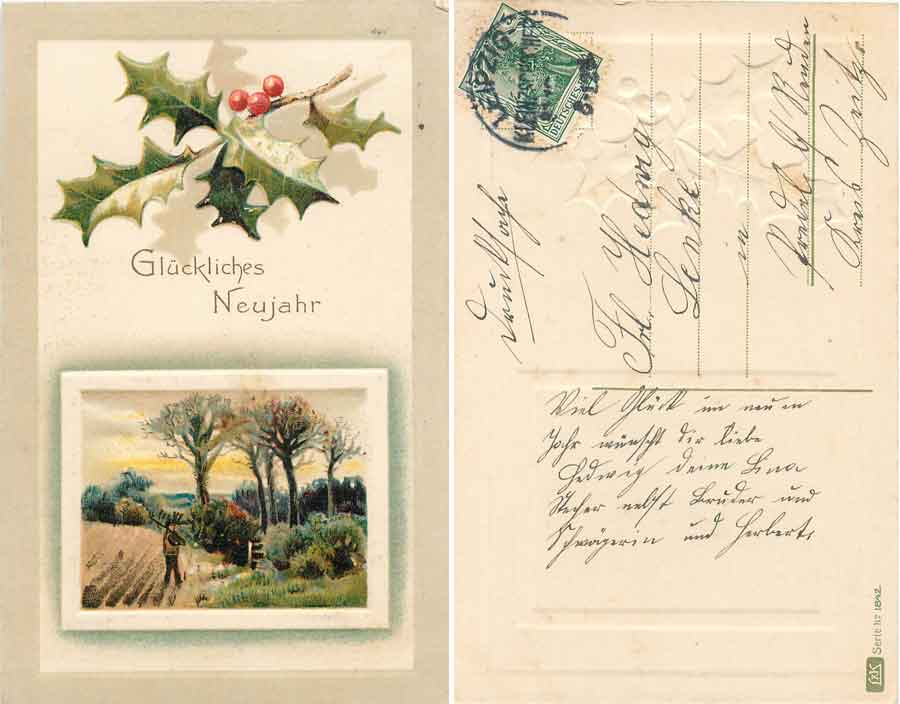 Glückliches
Neujahr
LEIPZIG
DEUTSCHES
Drucksache
Frl. Hedwig
Lenke
in
Kreis Zeitz
Viel Glück im neuen
Jahr wünscht dir liebe
Hedwig deine Lina
Stecher nebst Bruder und
Schwägerin und Herbert.
Serie Nr 1842